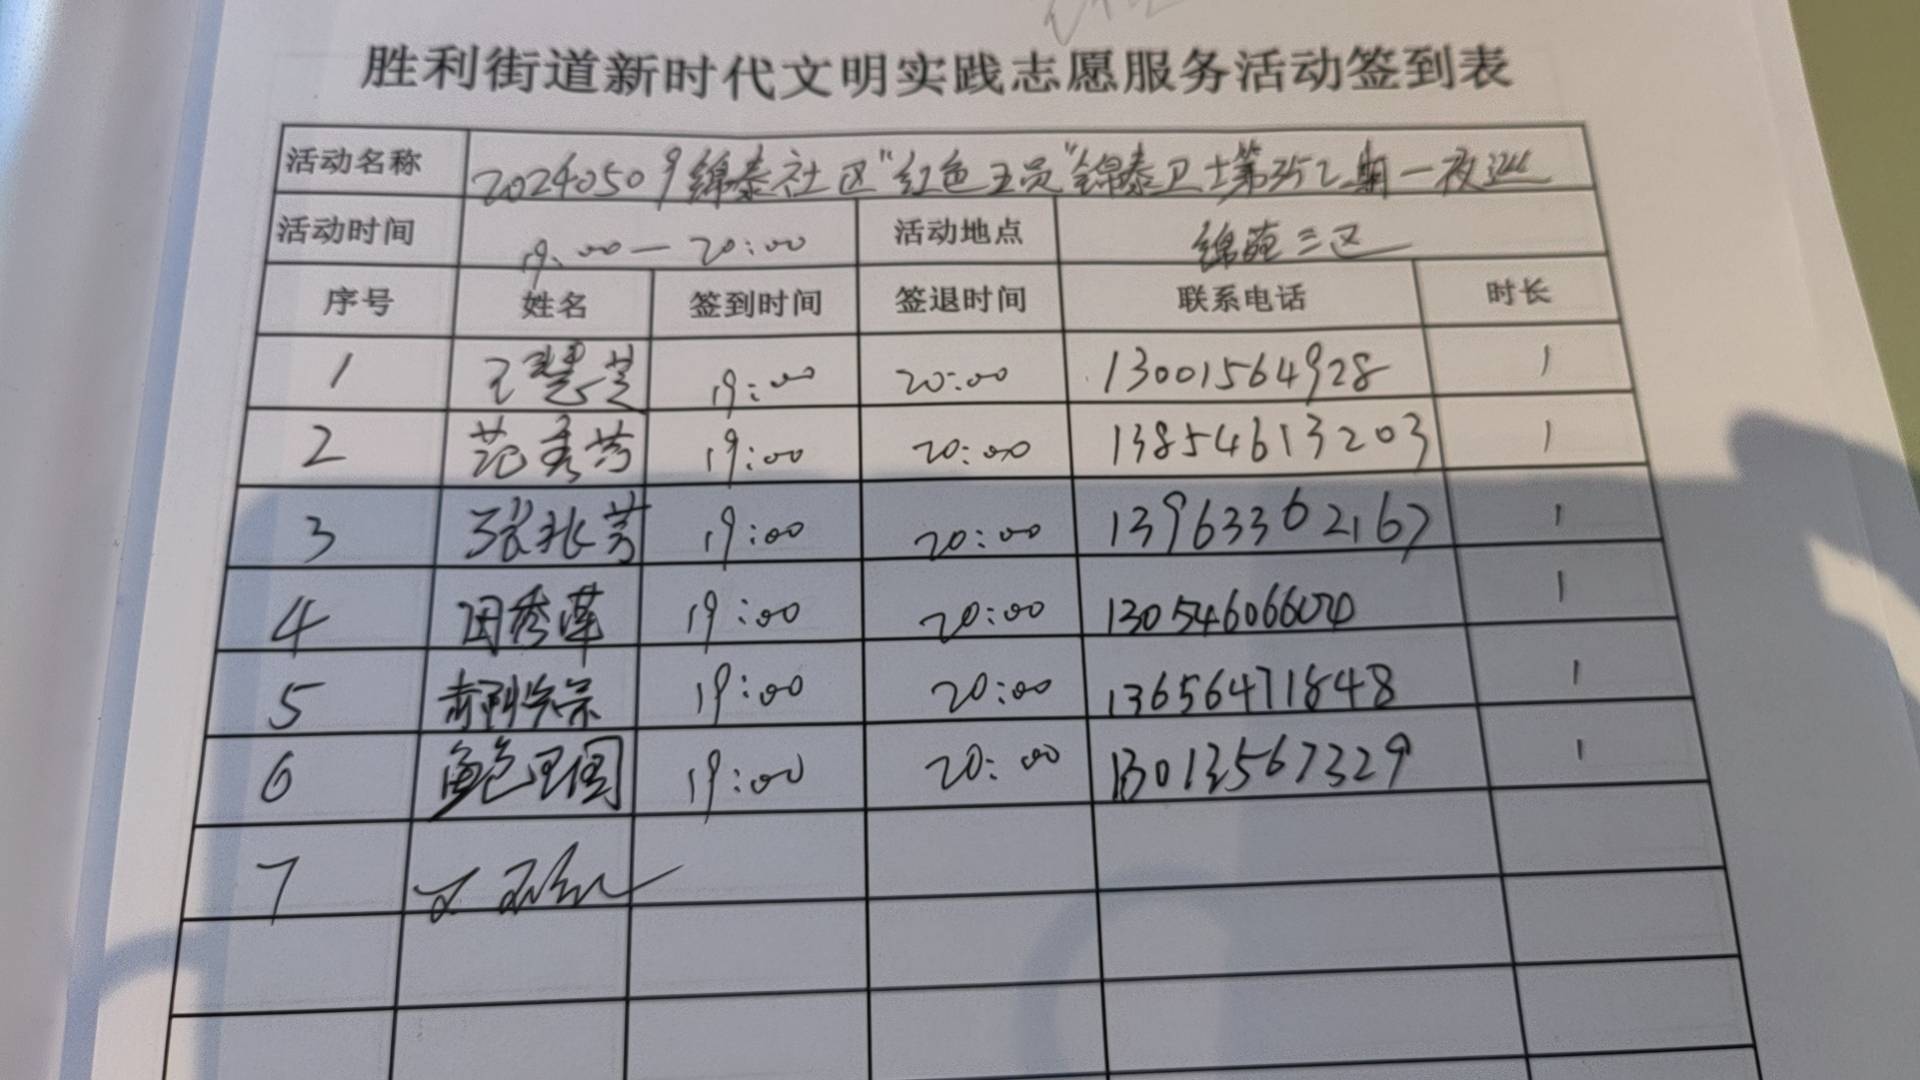 胜利街道新时代文明实践志愿服务活动签到表
活动名称 20240509锦泰社区"红色五员"锦泰卫士第352期一夜巡
活动时间 19:00—20:00 活动地点 锦苑三区
序号 姓名 签到时间 签退时间 联系电话 时长
1 王慧芝 19:00 20:00 13001564928 1
2 范秀芳 19:00 20:00 13854613203 1
3 张兆芳 19:00 20:00 13963362167 1
4 田秀莲 19:00 20:00 1
5 19:00 20:00 13656471848 1
6 鲍卫国 19:00 20:00 1
7